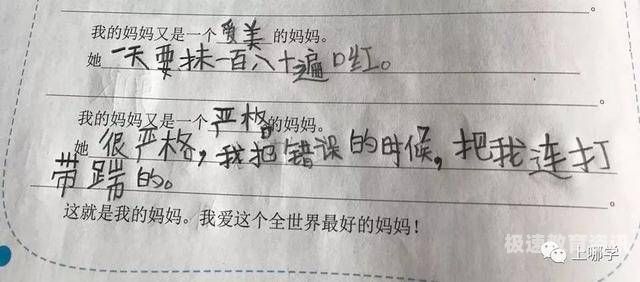 我的妈妈又是一个 爱美 的妈妈。
她 一天要抹一百八十遍口红。
。
我的妈妈又是一个 严格 的妈妈。
她 很严格，我把错误的时候，把我连打
带踹的。
。
这就是我的妈妈。我爱这个全世界最好的妈妈！
极速教育资讯
上哪学